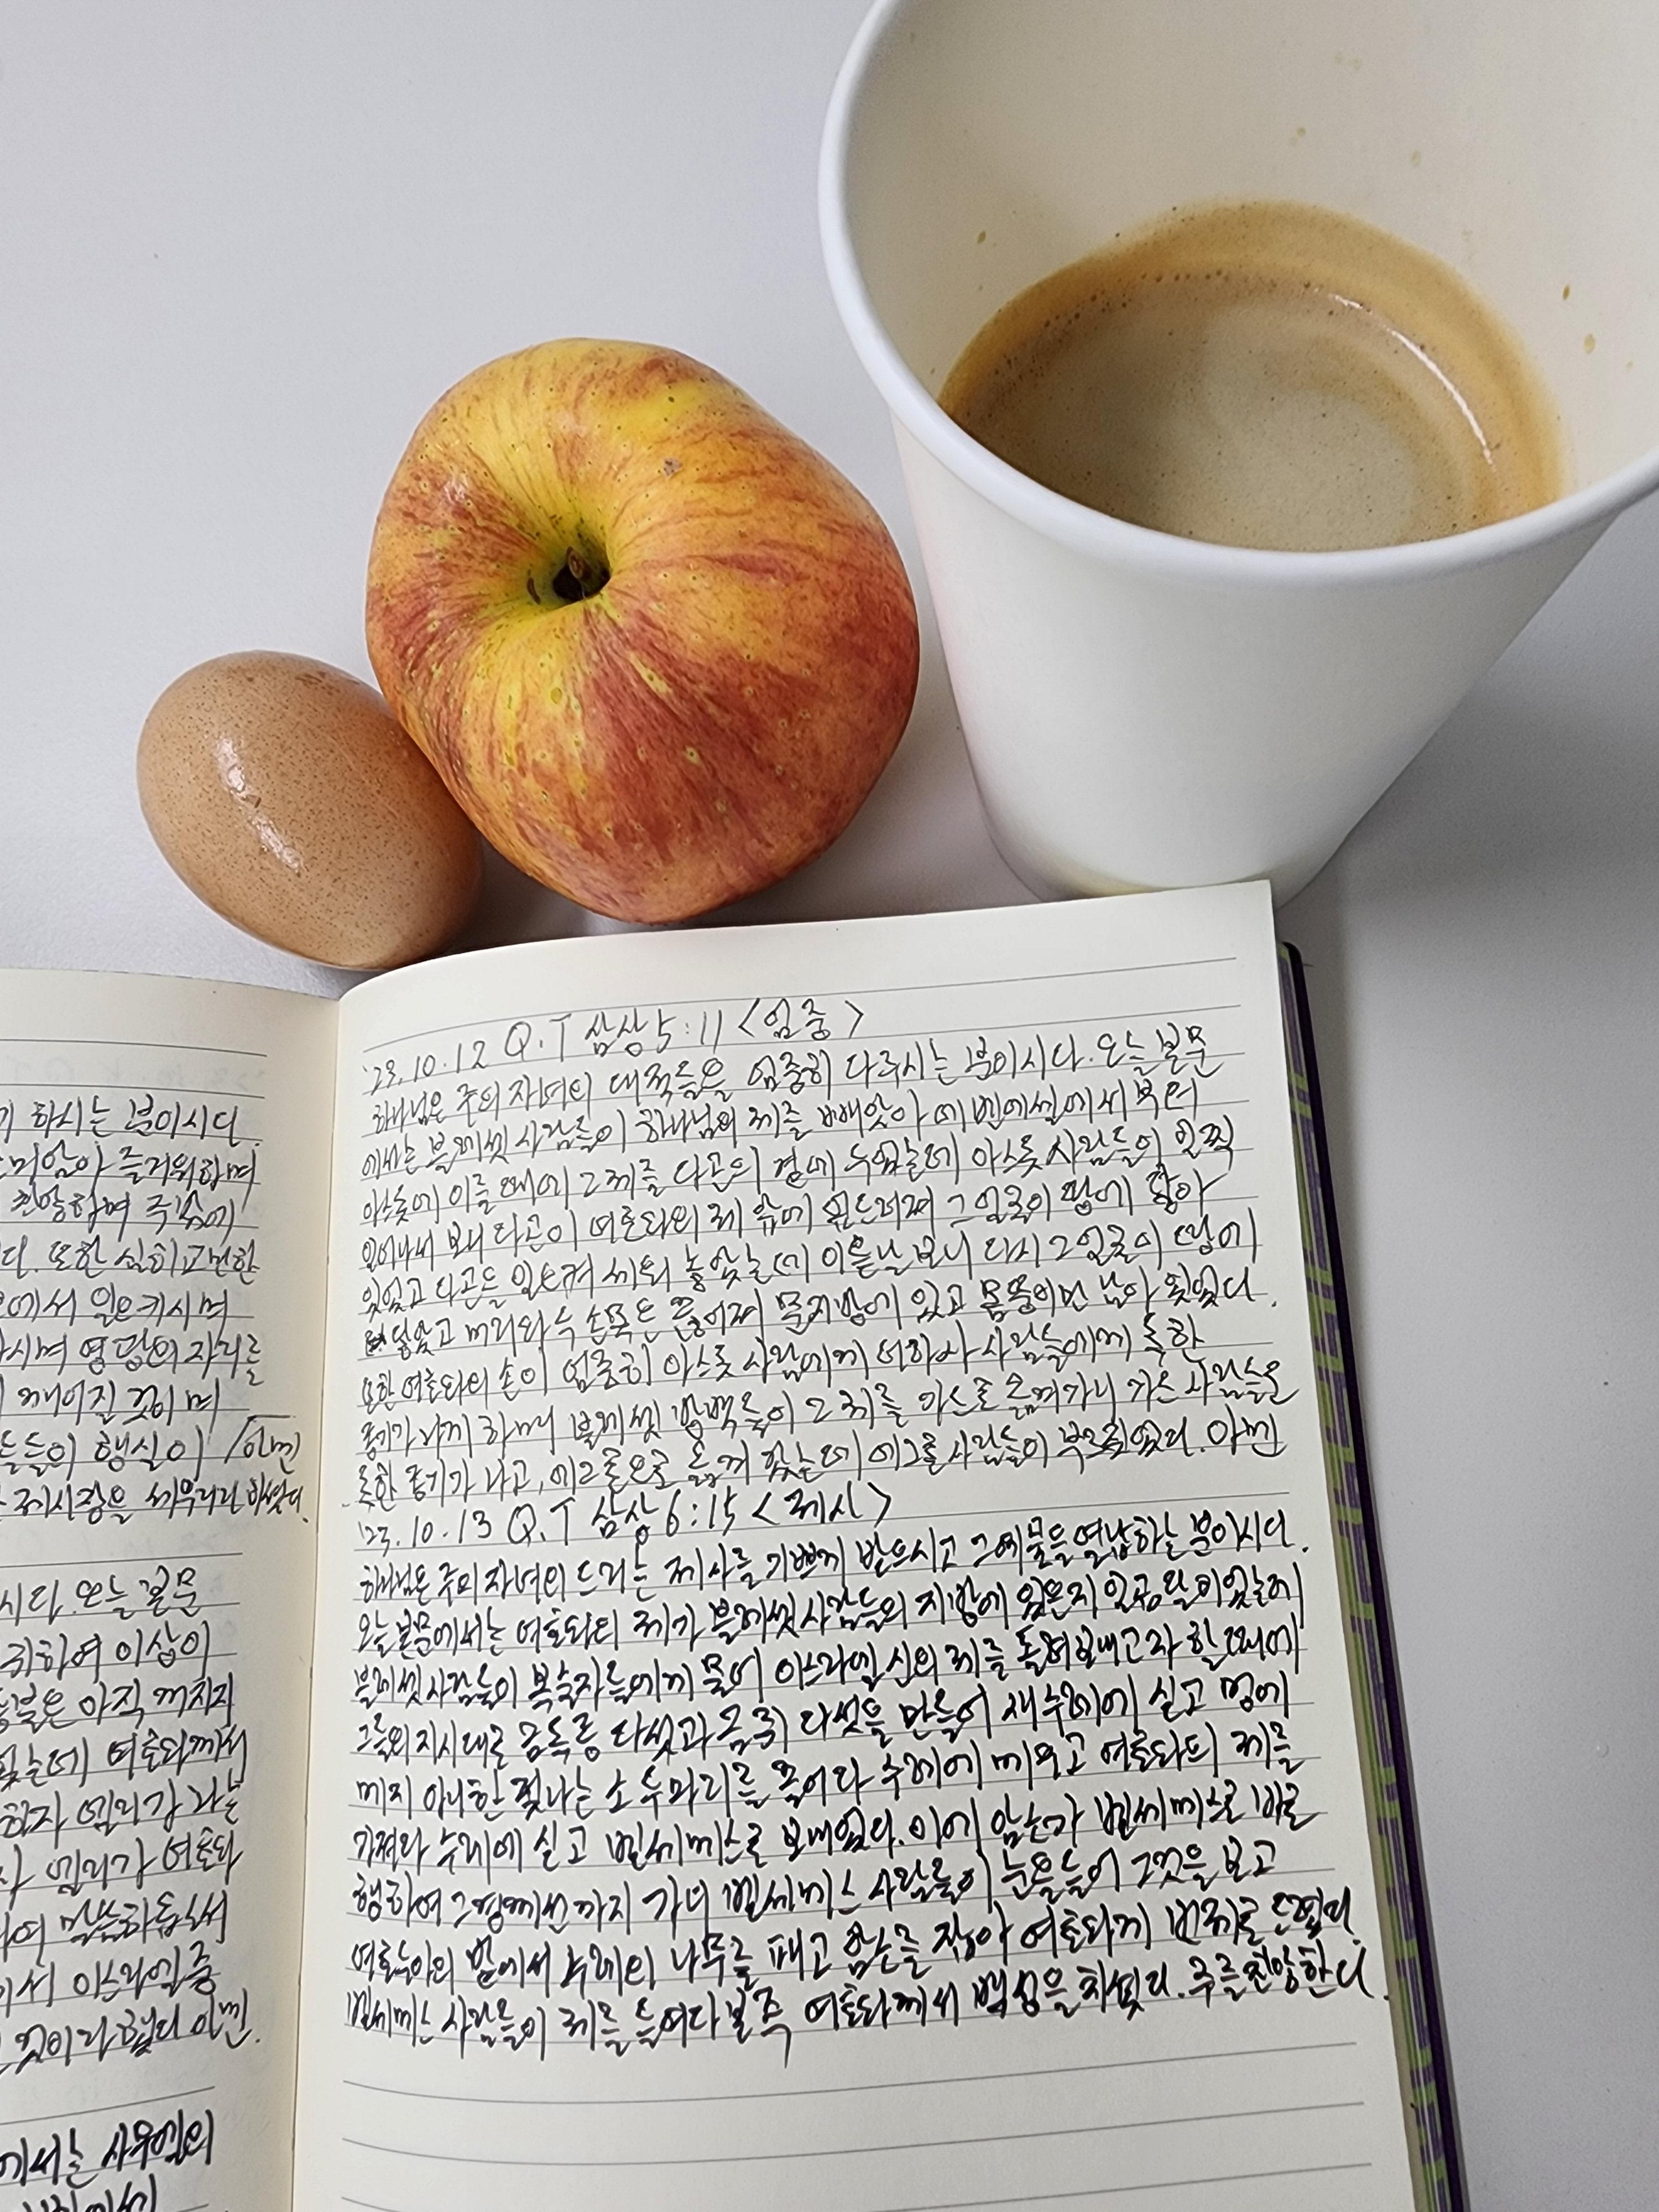 기 하시는 분이시다.
즐거워하며
찬양하며 주님께
다. 또한 심히 교만한
에서 일으키시며
하시며 영광의 자리를
깨어질 것이며
들의 행실이 아멘
제사장을 세우리라 하셨다.
시다. 오늘 본문
취하여 이삼이
등불은 아직 꺼지지
있는데 여호와께서
하자 엘리가 나는
엘리가 여호와
여 말씀하옵소서
에서 이스라엘 중
것이라 했다 아멘.
에서는 사무엘의
'23.10.12 Q.T 삼상5:11 <엄중>
하나님은 주의 자녀의 대적들을 엄중히 다루시는 분이시다. 오늘 본문
에서는 블레셋 사람들이 하나님의 궤를 빼앗아 에벤에셀에서부터
아스돗에 이를 때에 그 궤를 다곤의 곁에 두었는데 아스돗 사람들이 일찍
일어나서 보니 다곤이 여호와의 궤 앞에 엎드러져 그 얼굴이 땅에 닿아
있었고 다곤을 일으켜 세워 놓았는데 이튿날 보니 다시 그 얼굴이 땅에
닿았고 머리와 두 손목은 끊어져 문지방에 있고 몸뚱이만 남아 있었다.
또한 여호와의 손이 엄중히 아스돗 사람에게 더하사 사람들에게 독한
종기가 나게 하며 블레셋 방백들이 그 궤를 가드로 옮겨가니 가드 사람들은
독한 종기가 나고, 에그론으로 옮겨 갔는데 에그론 사람들이 부르짖었다. 아멘
'23.10.13 Q.T 삼상6:15 <제사>
하나님은 주의 자녀의 드리는 제사를 기쁘게 받으시고 그 예물을 열납하는 분이시다.
오늘 본문에서는 여호와의 궤가 블레셋 사람들의 지방에 있은지 일곱 달이었는데
블레셋 사람들이 복술자들에게 물어 이스라엘 신의 궤를 돌려보내고자 할 때에
그들의 지시대로 금독종 다섯과 금쥐 다섯을 만들어 새 수레에 싣고 멍에
메지 아니한 젖나는 소 두마리를 끌어다 수레에 메우고 여호와의 궤를
가져다 수레에 싣고 벧세메스로 보내었다. 이에 암소가 벧세메스로 바로
행하여 그 경계선까지 가니 벧세메스 사람들이 눈을 들어 그것을 보고
여호수아의 밭에서 수레의 나무를 패고 암소를 잡아 여호와께 번제로 드렸다.
벧세메스 사람들이 궤를 들여다 본즉 여호와께서 백성을 치셨다. 주를 찬양한다.